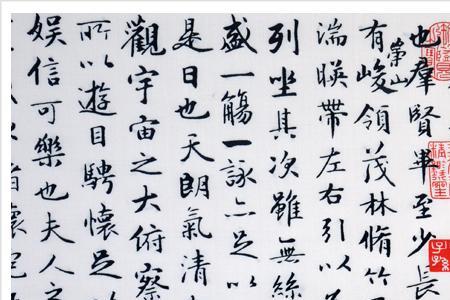 也羣賢畢至少長
有崇山峻領茂林脩竹
湍暎帶左右引以
列坐其次雖無絲
盛一觴一詠亦足以
是日也天朗氣清
觀宇宙之大俯察
所以遊目騁懷足
娛信可樂也夫人之
子孫